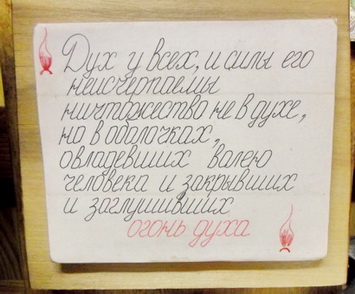 Дух у всех, и силы его
неисчерпаемы
ничтожество не в духе,
но в оболочках,
овладевших валею
человека и закрывших
и заглушивших
огонь духа